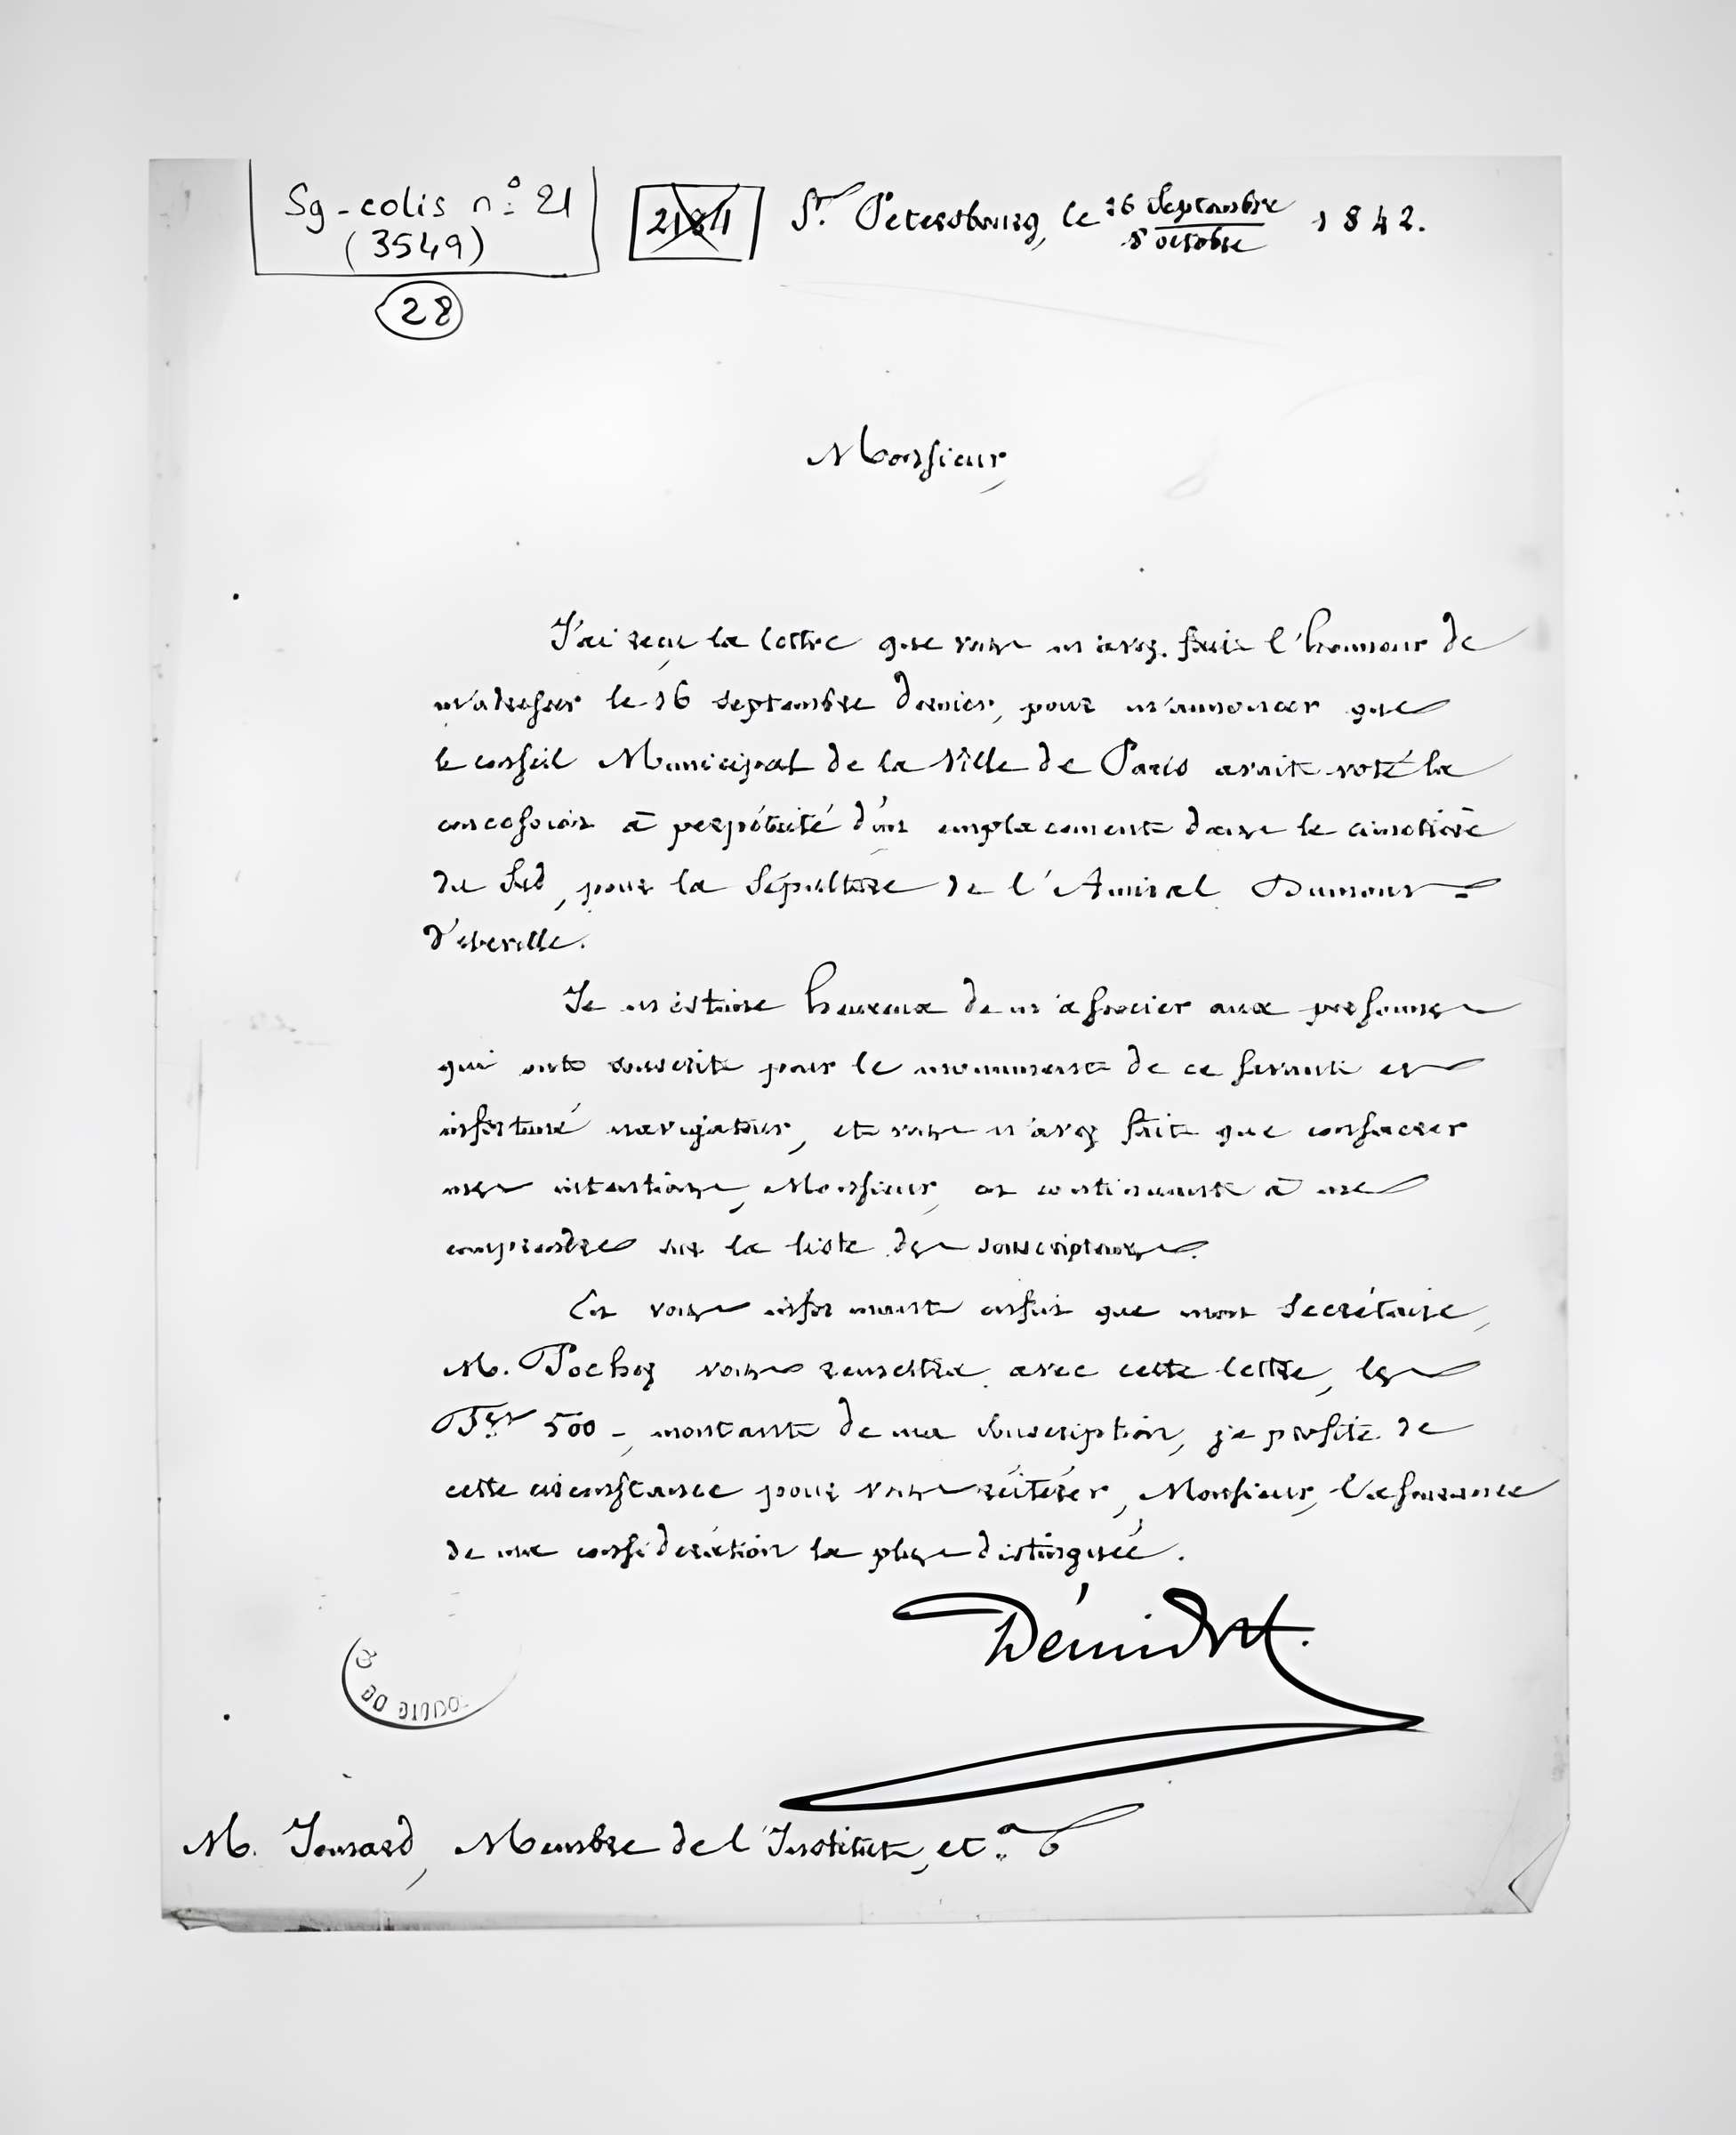 Sg - colis n° 21
(3549)
28
2184
St. Petersbourg, le 26 Septembre / 8 octobre 1842.
Monsieur,
J'ai reçu la lettre que vous m'avez fait l'honneur de
m'adresser le 16 septembre dernier, pour m'annoncer que
le conseil Municipal de la Ville de Paris avait voté la
concession à perpétuité d'un emplacement dans le cimetière
du Sud, pour la Sépulture de l'Amiral Dumont =
d'Urville.
Je m'estime heureux de m'associer aux personnes
qui ont souscrit pour le monument de ce savant et
infortuné navigateur, et vous n'avez fait que consacrer
mes intentions, Monsieur, en continuant à me
comprendre sur la liste des souscripteurs.
En vous informant enfin que mon Secrétaire,
M. Pochez vous remettra avec cette lettre, les
Frs 500 -, montant de ma Souscription, je profite de
cette circonstance pour vous réitérer, Monsieur, l'assurance
de ma considération la plus distinguée.
Démidoff.
M. Jomard, Membre de l'Institut, etca